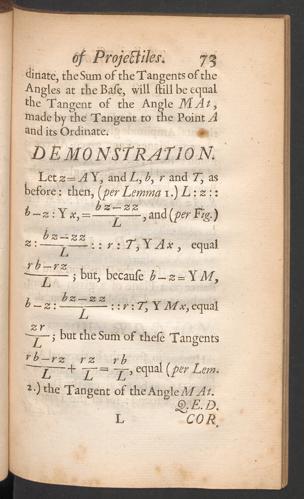 of Projectiles. 73
dinate, the Sum of the Tangents of the
Angles at the Base, will still be equal
the Tangent of the Angle MAt,
made by the Tangent to the Point A
and its Ordinate.
DEMONSTRATION.
Let z=AY, and L, b, r and T, as
before: then, (per Lemma 1.) L : z ::
b−z : Yx, = (bz−zz)/L, and (per Fig.)
z : (bz−zz)/L :: r : T, YAx, equal
(rb−rz)/L; but, because b−z=YM,
b−z : (bz−zz)/L :: r : T, YMx, equal
zr/L; but the Sum of these Tangents
(rb−rz)/L + rz/L = rb/L, equal (per Lem.
2.) the Tangent of the Angle MAt.
Q.E.D.
L COR.